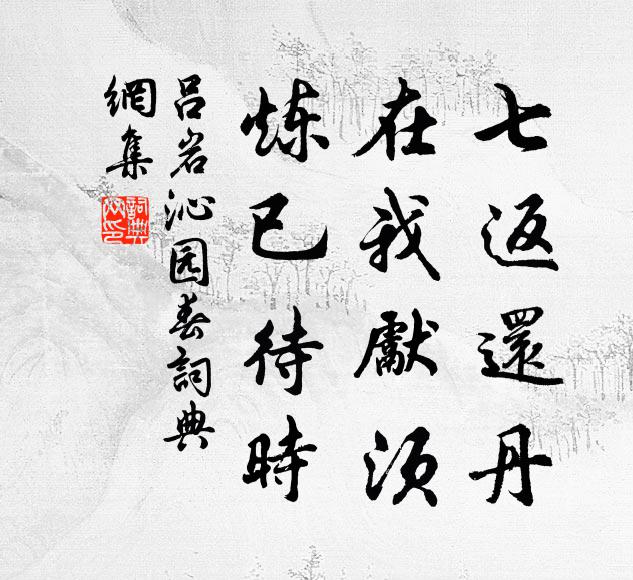 七返還丹
在我獻須
炼已待時
吕岩沁园春詞典
網集
詞典網印